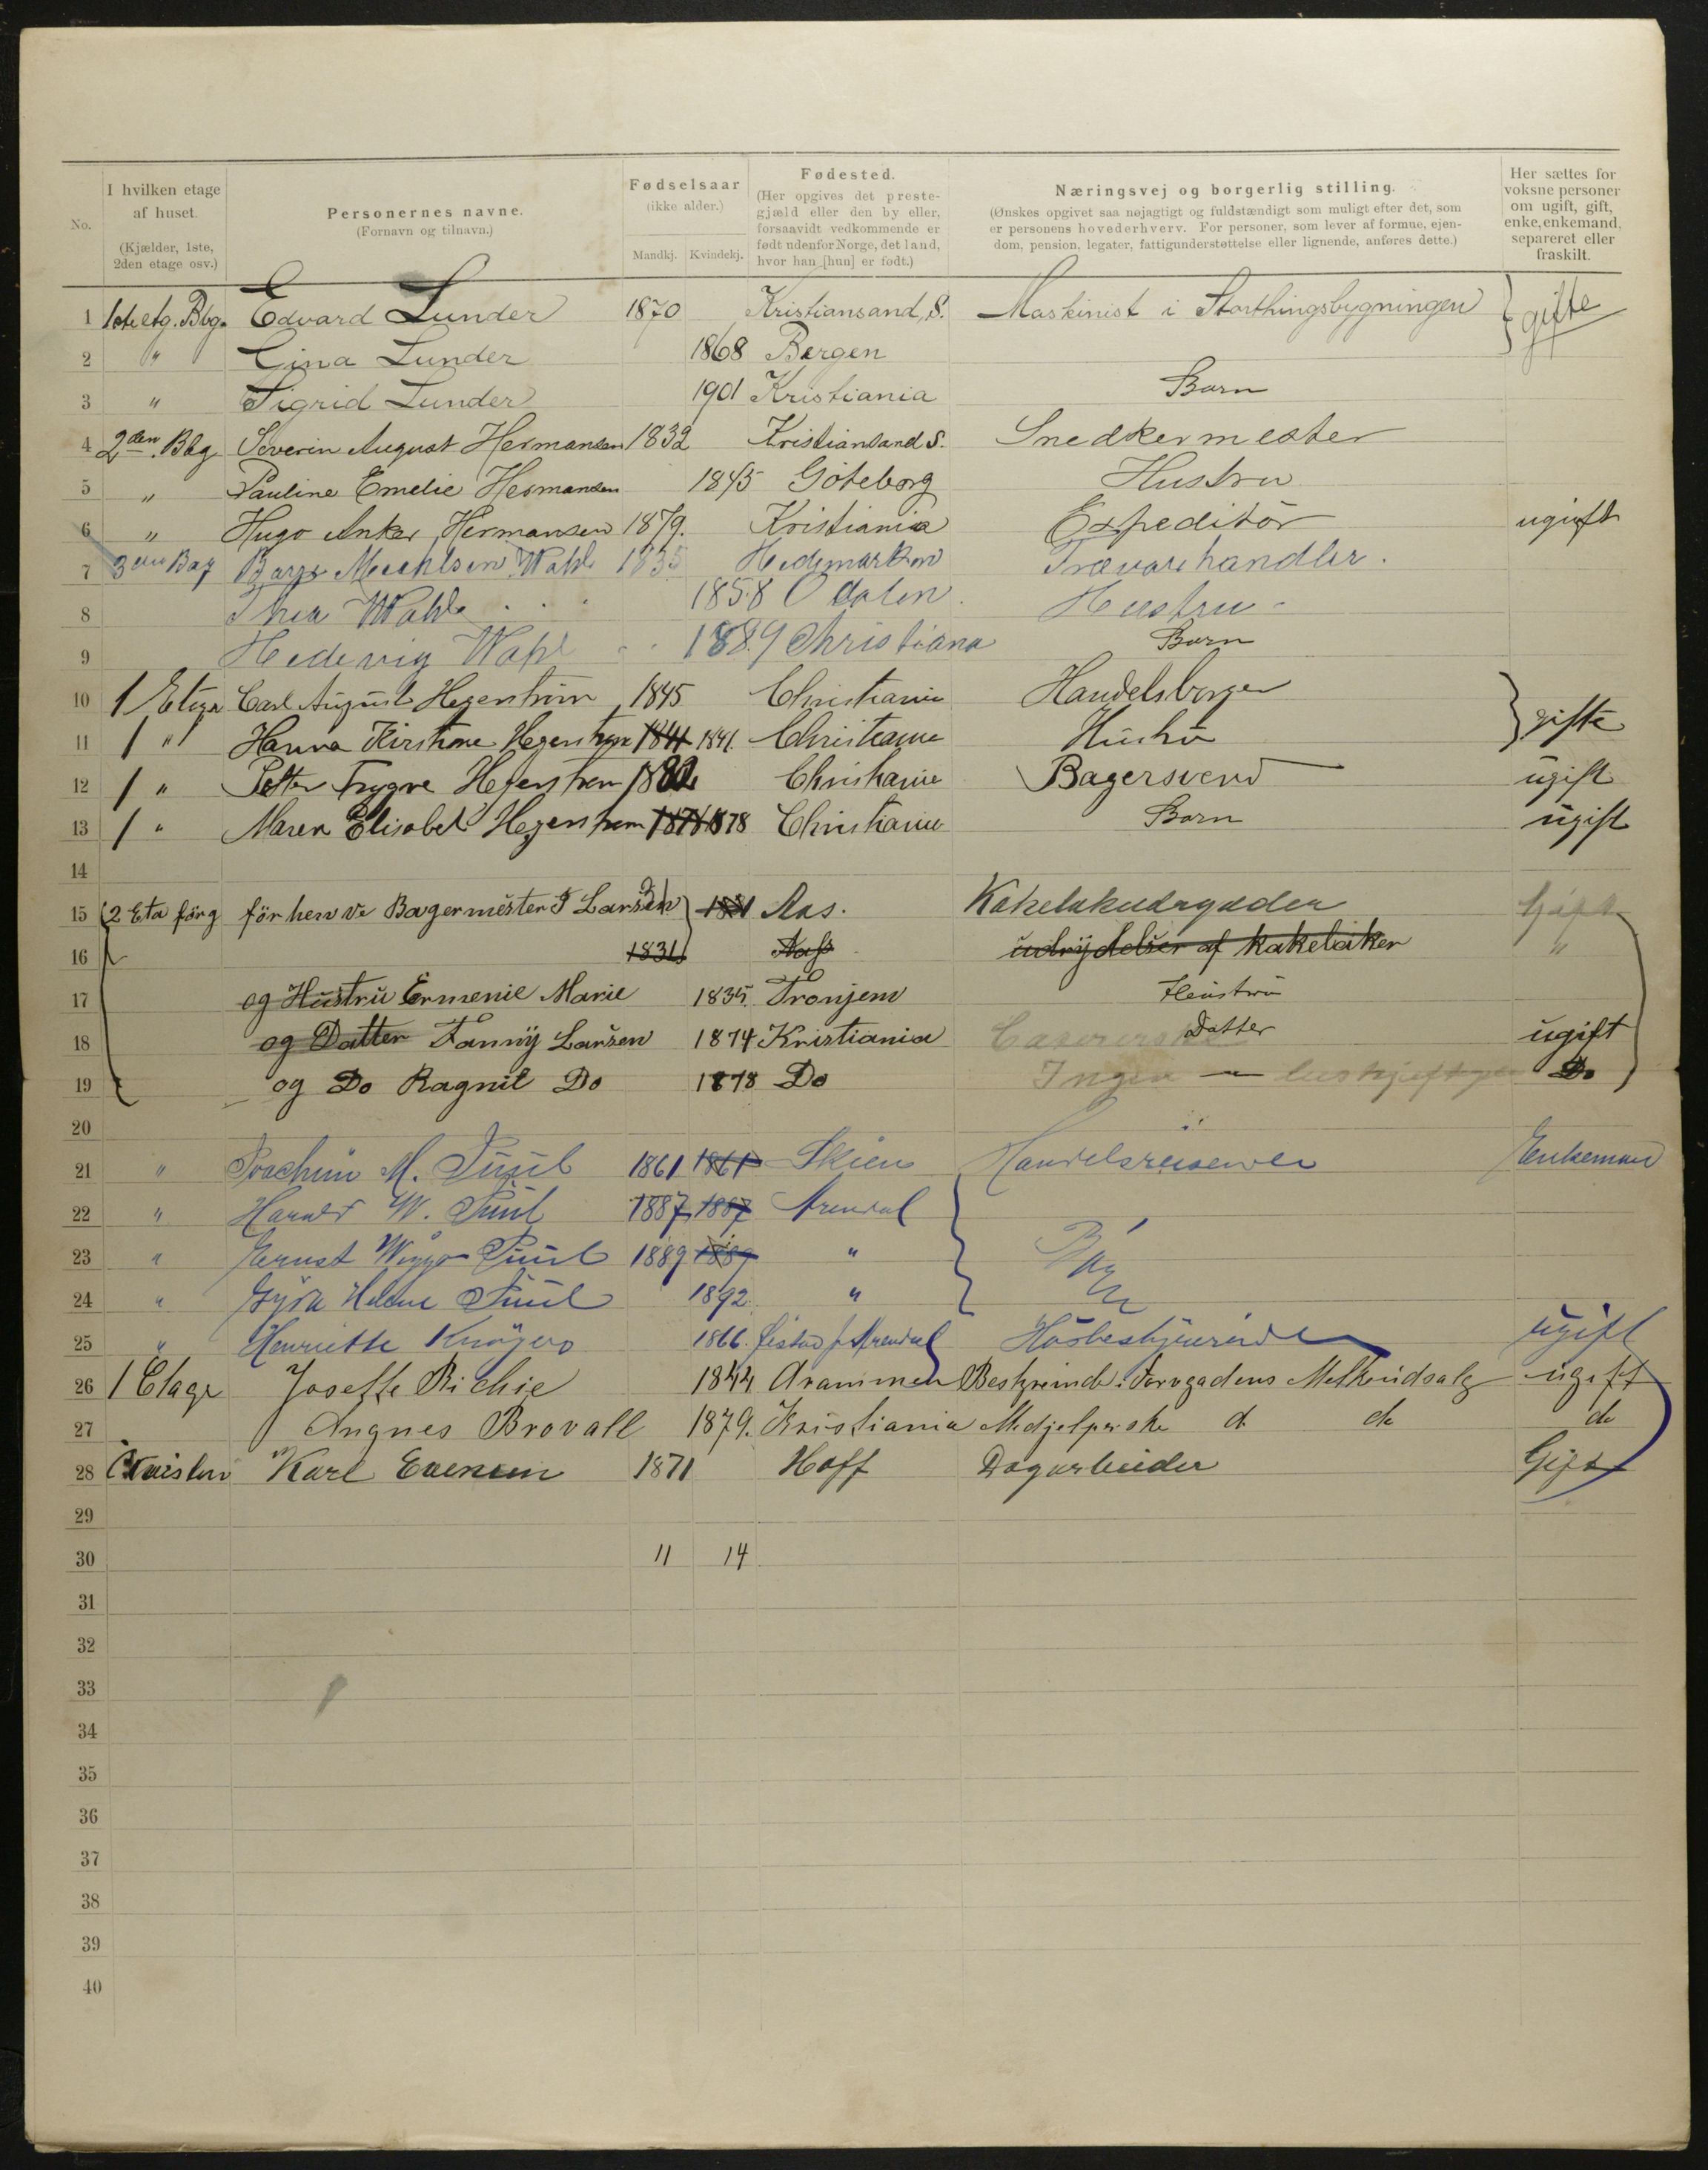 No.
I hvilken etage af huset.
(Kjælder, 1ste, 2den etage osv.)
Personernes navne.
(Fornavn og tilnavn.)
Fødselsaar
(ikke alder.)
Mandkj. Kvindekj.
Fødested.
(Her opgives det prestegjæld eller den by eller, forsaavidt vedkommende er født udenfor Norge, det land, hvor han [hun] er født.)
Næringsvej og borgerlig stilling.
(Ønskes opgivet saa nøjagtigt og fuldstændigt som muligt efter det, som er personens hovederhverv. For personer, som lever af formue, ejendom, pension, legater, fattigunderstøttelse eller lignende, anføres dette.)
Her sættes for voksne personer om ugift, gift, enke, enkemand, separeret eller fraskilt.
1 1ste etg. Bbg. Edvard Lunder 1870 Kristiansand, S. Maskinist i Storthingsbygningen gifte
2 " Gina Lunder 1868 Bergen
3 " Sigrid Lunder 1901 Kristiania Barn
4 2den Bbg Severin August Hermansen 1832 Kristiansand S. Snedkermester
5 " Pauline Emelie Hermansen 1845 Göteborg Hustru
6 " Hugo Anker Hermansen 1879. Kristiania Expeditör ugift
7 3 Bag Wahl 1835 Hedemarken Trævarehandler.
8 Thea Wahl 1858 Odalen. Hustru
9 Hedevig Wahl 1889 Christiana Barn
10 1 Etage Carl August Hegerstrøm 1845 Christiania Handelsborger
11 1 " Hanna Kirstine Hegerstrøm 1841 1841. Christiania Hustru gifte
12 1 " Petter Trygve Hegerstrøm 1882 Christiania Bagersvend ugift
13 1 " Maren Elisabet Hegerstrøm 1878 1878 Christiania Barn ugift
14
15 2 Eta förg för henve Bagermester Larsen 1831 Aas. Gift
16 1831 Aas udrydelser af kakelaker "
17 og Hustru Ermenie Marie 1835. Tronjem Heustru
18 og Datter Fanny Larsen 1874 Kristiania Datter ugift
19 og Do Ragnil Do 1878 Do Ingen Do
20
21 " Joachim M. Juul 1861 1861 Skien Handelsreisende Enkemand
22 " Harald W. Juul 1887 1887 Arendal
23 " Ernst Wiggo Juul 1889 1889 "
24 " Gyda Helene Juul 1892 "
25 " Henriette 1866. Arendal Husbestyrerinde ugift
26 1 Etage Josefte Richie 1844 Drammen Bestyrinde i Torvgadens Melkeudsalg ugift
27 Angnes Brovall 1879. Kristiania Medjelperske do do do
28 Karl Evensen 1871 Hoff Dagarbeider Gift
29
30 11 14
31
32
33
34
35
36
37
38
39
40